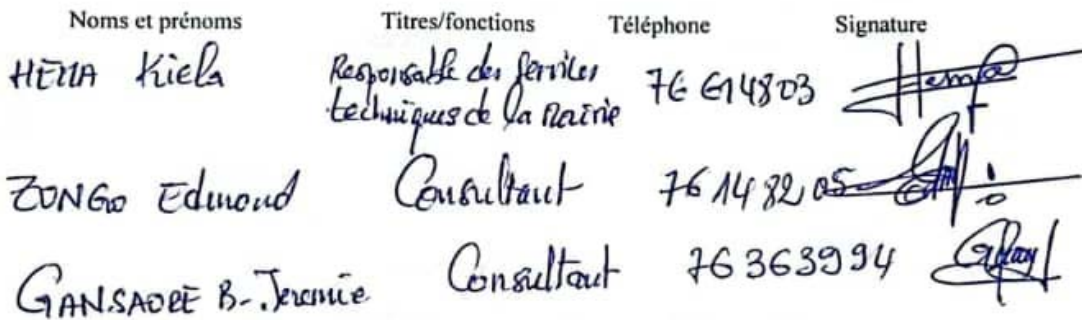 Noms et prénoms Titres/fonctions Téléphone Signature
HEMA Kiela Responsable des services 76 614803 Hema
techniques de la Mairie
ZONGO Edmond Consultant 76 14 82 05
GANSAORE B- Jeremie Consultant 76 363994